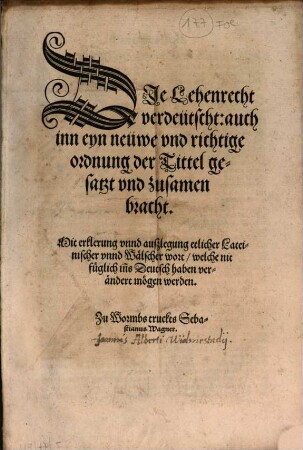 177
DIe Lehenrecht
verdeütscht: auch
inn eyn neüwe vnd richtige
ordnung der Tittel ge-
satzt vnd zusamen
bracht.
Mit erklerung vnnd außlegung etlicher Latei-
nischer vnnd Wälscher wort / welche nit
füglich inns Deutsch haben ver-
ändert mögen werden.
Zu Wormbs truckts Seba-
stianus Wagner.
Joannis Alberti Widmestadij.